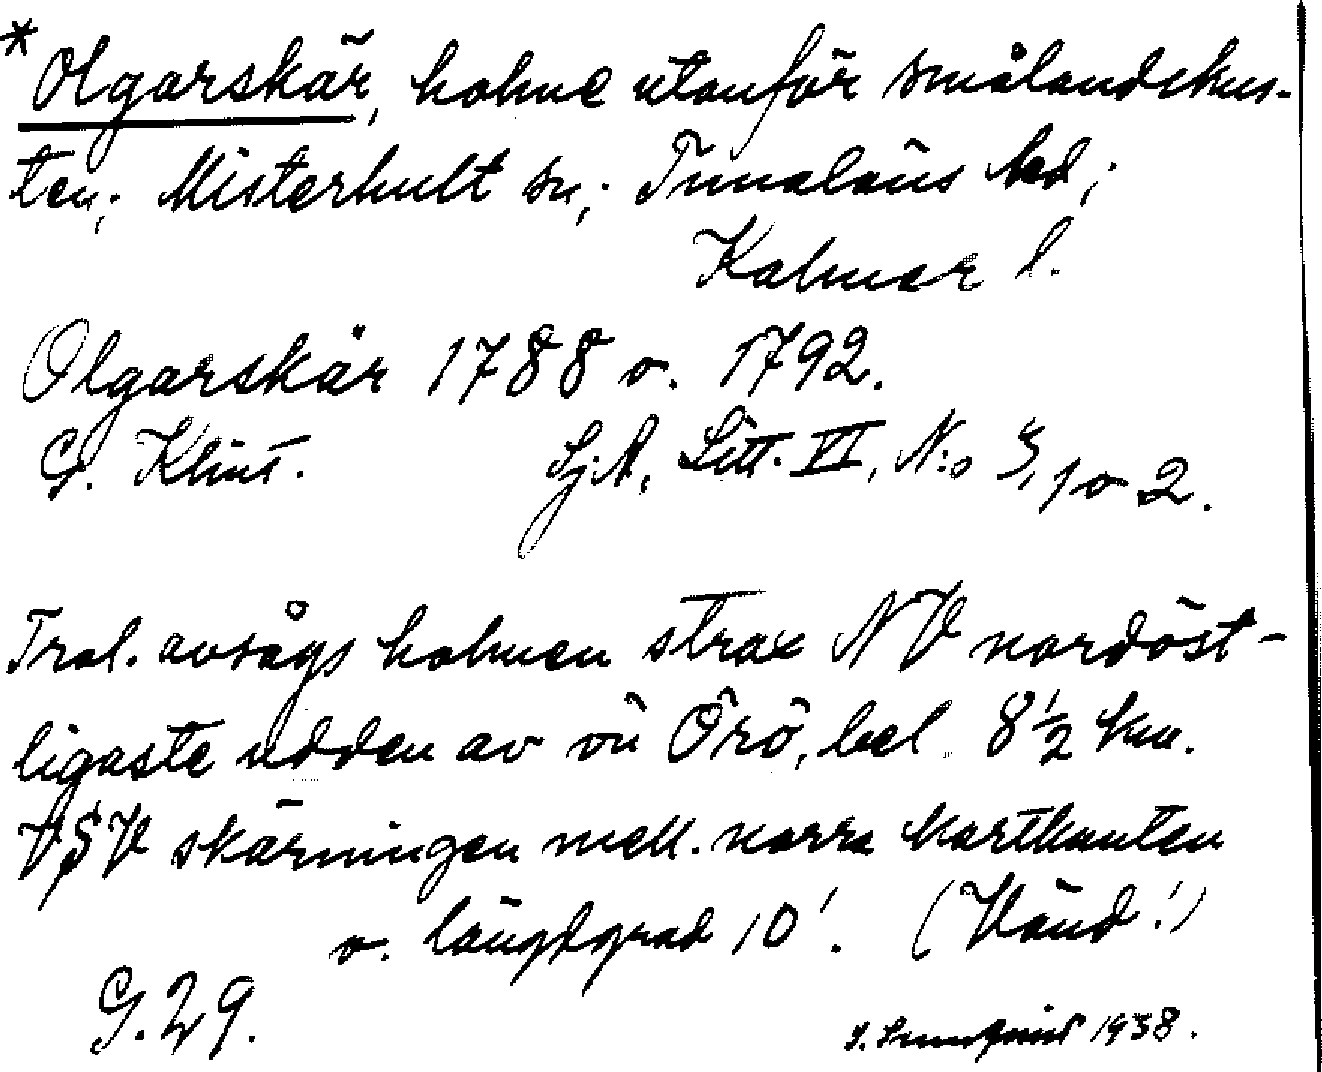 *Olgarskär, holme utanför smålandskus-
ten; Misterhult sn; Tunaläns hd;
Kalmar l.
Olgarskär 1788 o. 1792.
G. Klint. Sj.A, Litt. VI, N:o 3, 1 o 2.
Trol. avsågs holmen strax NV nordöst-
ligaste udden av ön Örö, bel. 8 1/2 km.
VSV skärningen mell. norra kartkanten
o. längdgrad 10'. (Vänd!)
G. 29.
1938.